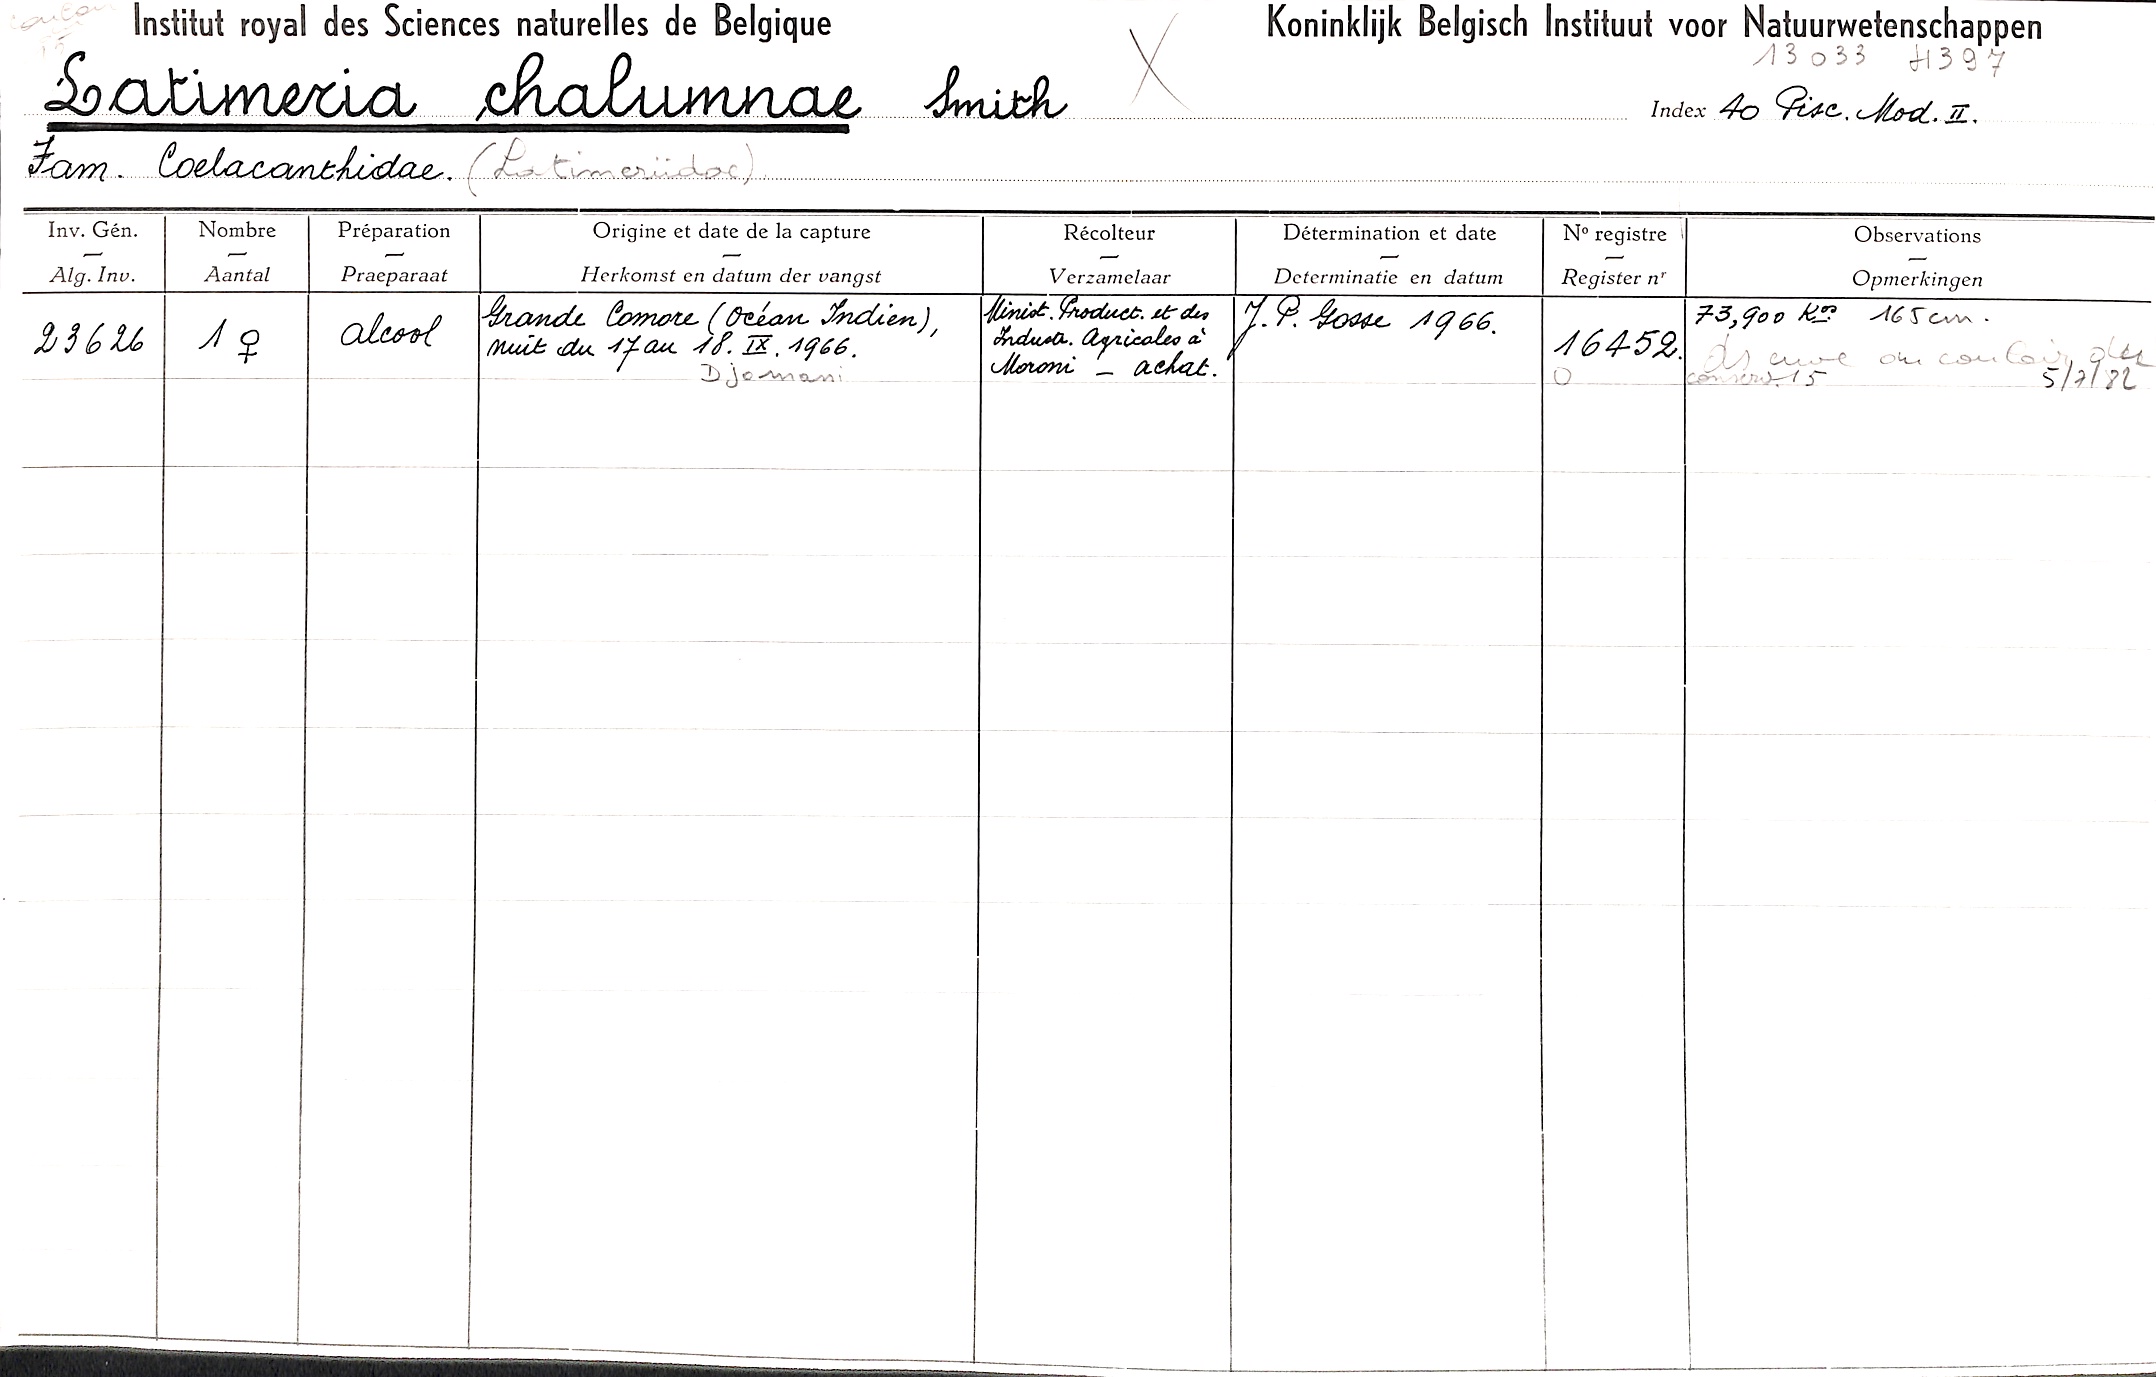 Institut royal des Sciences naturelles de Belgique
Koninklijk Belgisch Instituut voor Natuurwetenschappen
13033 H397
Latimeria chalumnae Smith
Index 40 Pisc. Mod. II.
Fam. Coelacanthidae. (Latimeriidae)
Inv. Gén. — Alg. Inv.
Nombre — Aantal
Préparation — Praeparaat
Origine et date de la capture — Herkomst en datum der vangst
Récolteur — Verzamelaar
Détermination et date — Determinatie en datum
Nº registre — Register nr
Observations — Opmerkingen
23626
1 ♀
alcool
Grande Comore (Océan Indien),
nuit du 17 au 18. IX. 1966.
Djomani
Minist. Product. et des
Industr. Agricoles à
Moroni — achat.
J. P. Gosse 1966.
16452.
0
73,900 Kgs 165 cm.
ds cuve au couloir des
conserv. 15 5/7/82